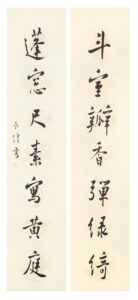 斗室瓣香彈綠綺
蓬窓尺素寫黃庭